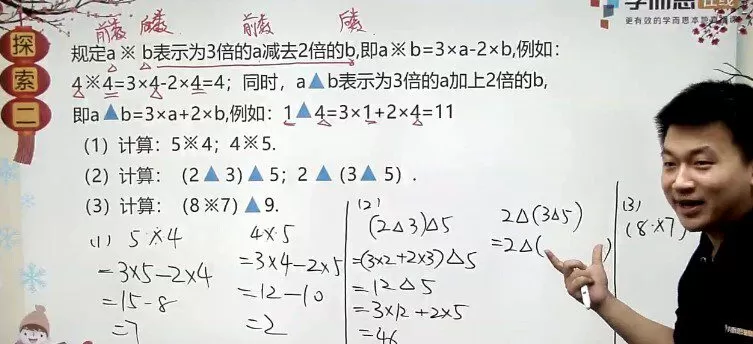 学而思
更有效的学而思本
前数 后数 前数 后数
探索二
规定a※b表示为3倍的a减去2倍的b,即a※b=3×a-2×b,例如:
4※4=3×4-2×4=4；同时，a▲b表示为3倍的a加上2倍的b,
即a▲b=3×a+2×b,例如：1▲4=3×1+2×4=11
(1) 计算：5※4；4※5.
(2) 计算：(2▲3)▲5；2▲(3▲5).
(3) 计算：(8※7)▲9.
(1) 5※4
=3×5-2×4
=15-8
=7
4※5
=3×4-2×5
=12-10
=2
(2)
(2△3)△5
=(3×2+2×3)△5
=12△5
=3×12+2×5
=46
2△(3△5)
=2△( )
(3)
(8※7)